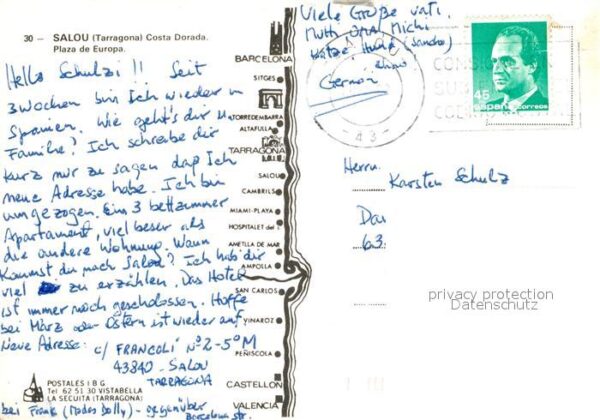 30 - SALOU (Tarragona) Costa Dorada.
Plaza de Europa.
Hello Schulzi !! Seit
3 Wochen bin Ich wieder in
Spanien. Wie geht's dir u.
Familie? Ich schreibe dir
kurz nur zu sagen daß Ich
neue Adresse habe. Ich bin
umgezogen. Ein 3 bettzimmer
Apartament, viel beser als
die andere Wohnung. Wann
Kommst du nach Salou? Ich hab dir
viel zu erzählen. Das Hotel
ist immer noch gescholossen. Hoffe
bei März oder Ostern ist wieder auf
Neue Adresse: c/ FRANCOLÍ Nº 2-5º M
43840-SALOU
TARRAGONA
bei Frank (Modas Dolly) - gegenüber
Barcelona str.
POSTALES I B G
Tel 62 51 30 VISTABELLA
LA SECUITA (TARRAGONA)
BARCELONA
SITGES
TORREDEMBARRA
ALTAFULLA
TARRAGONA
SALOU
CAMBRILS
MIAMI-PLAYA
HOSPITALET del I.
AMETLLA DE MAR
AMPOLLA
SAN CARLOS
VINAROZ
PEÑISCOLA
CASTELLON
VALENCIA
Viele Grüße Vati,
Mutti Oma Michi
Hund (Sandro)
German
- 43 -
45
españa correos
Herrn
Karsten Schulz
63
privacy protection
Datenschutz